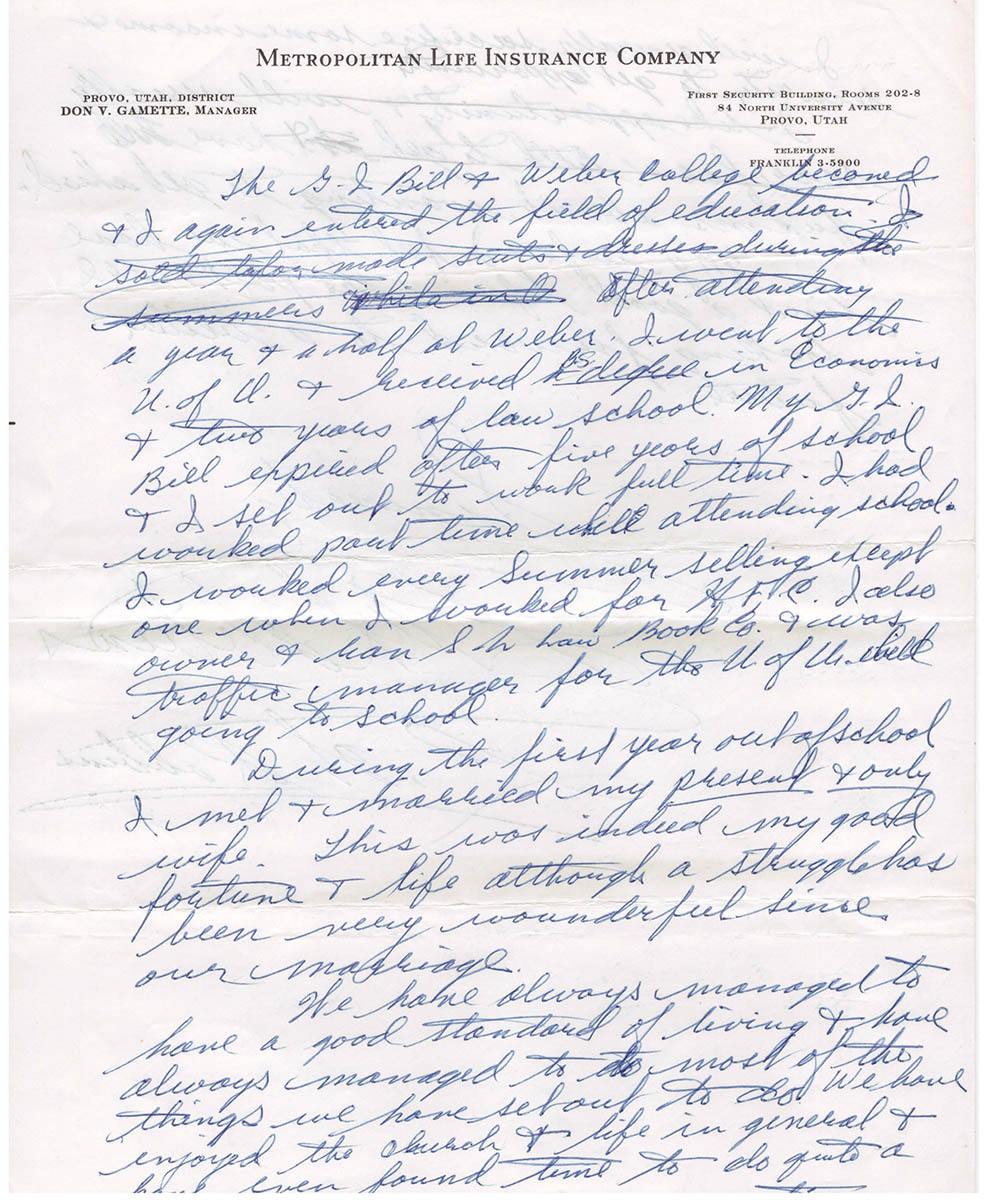 METROPOLITAN LIFE INSURANCE COMPANY
PROVO, UTAH, DISTRICT
DON V. GAMETTE, MANAGER
FIRST SECURITY BUILDING, ROOMS 202-8
84 NORTH UNIVERSITY AVENUE
PROVO, UTAH
TELEPHONE
FRANKLIN 3-5900
The G I Bill & Weber College beconed
& I again entered the field of education. I
sold made suits & dresses during the
summers while in after attending
a year & a half at Weber. I went to the
U. of U. & received BS. degree in Economics
& two years of law school. My G. I.
Bill expired after five years of school
& I set out to work full time. I had
worked part time while attending school.
I worked every Summer selling except
one when I worked for H. F. C. I also
owner & S L Law Book Co. & was
traffic manager for the U. of U. while
going to school.
During the first year out of school
I met & married my present & only
wife. This was indeed my good
fortune & life although a struggle has
been very wounderful since
our marriage.
We have always managed to
have a good standard of living & have
always managed to do most of the
things we have set out to do. We have
enjoyed the church & life in general &
have even found time to do quite a